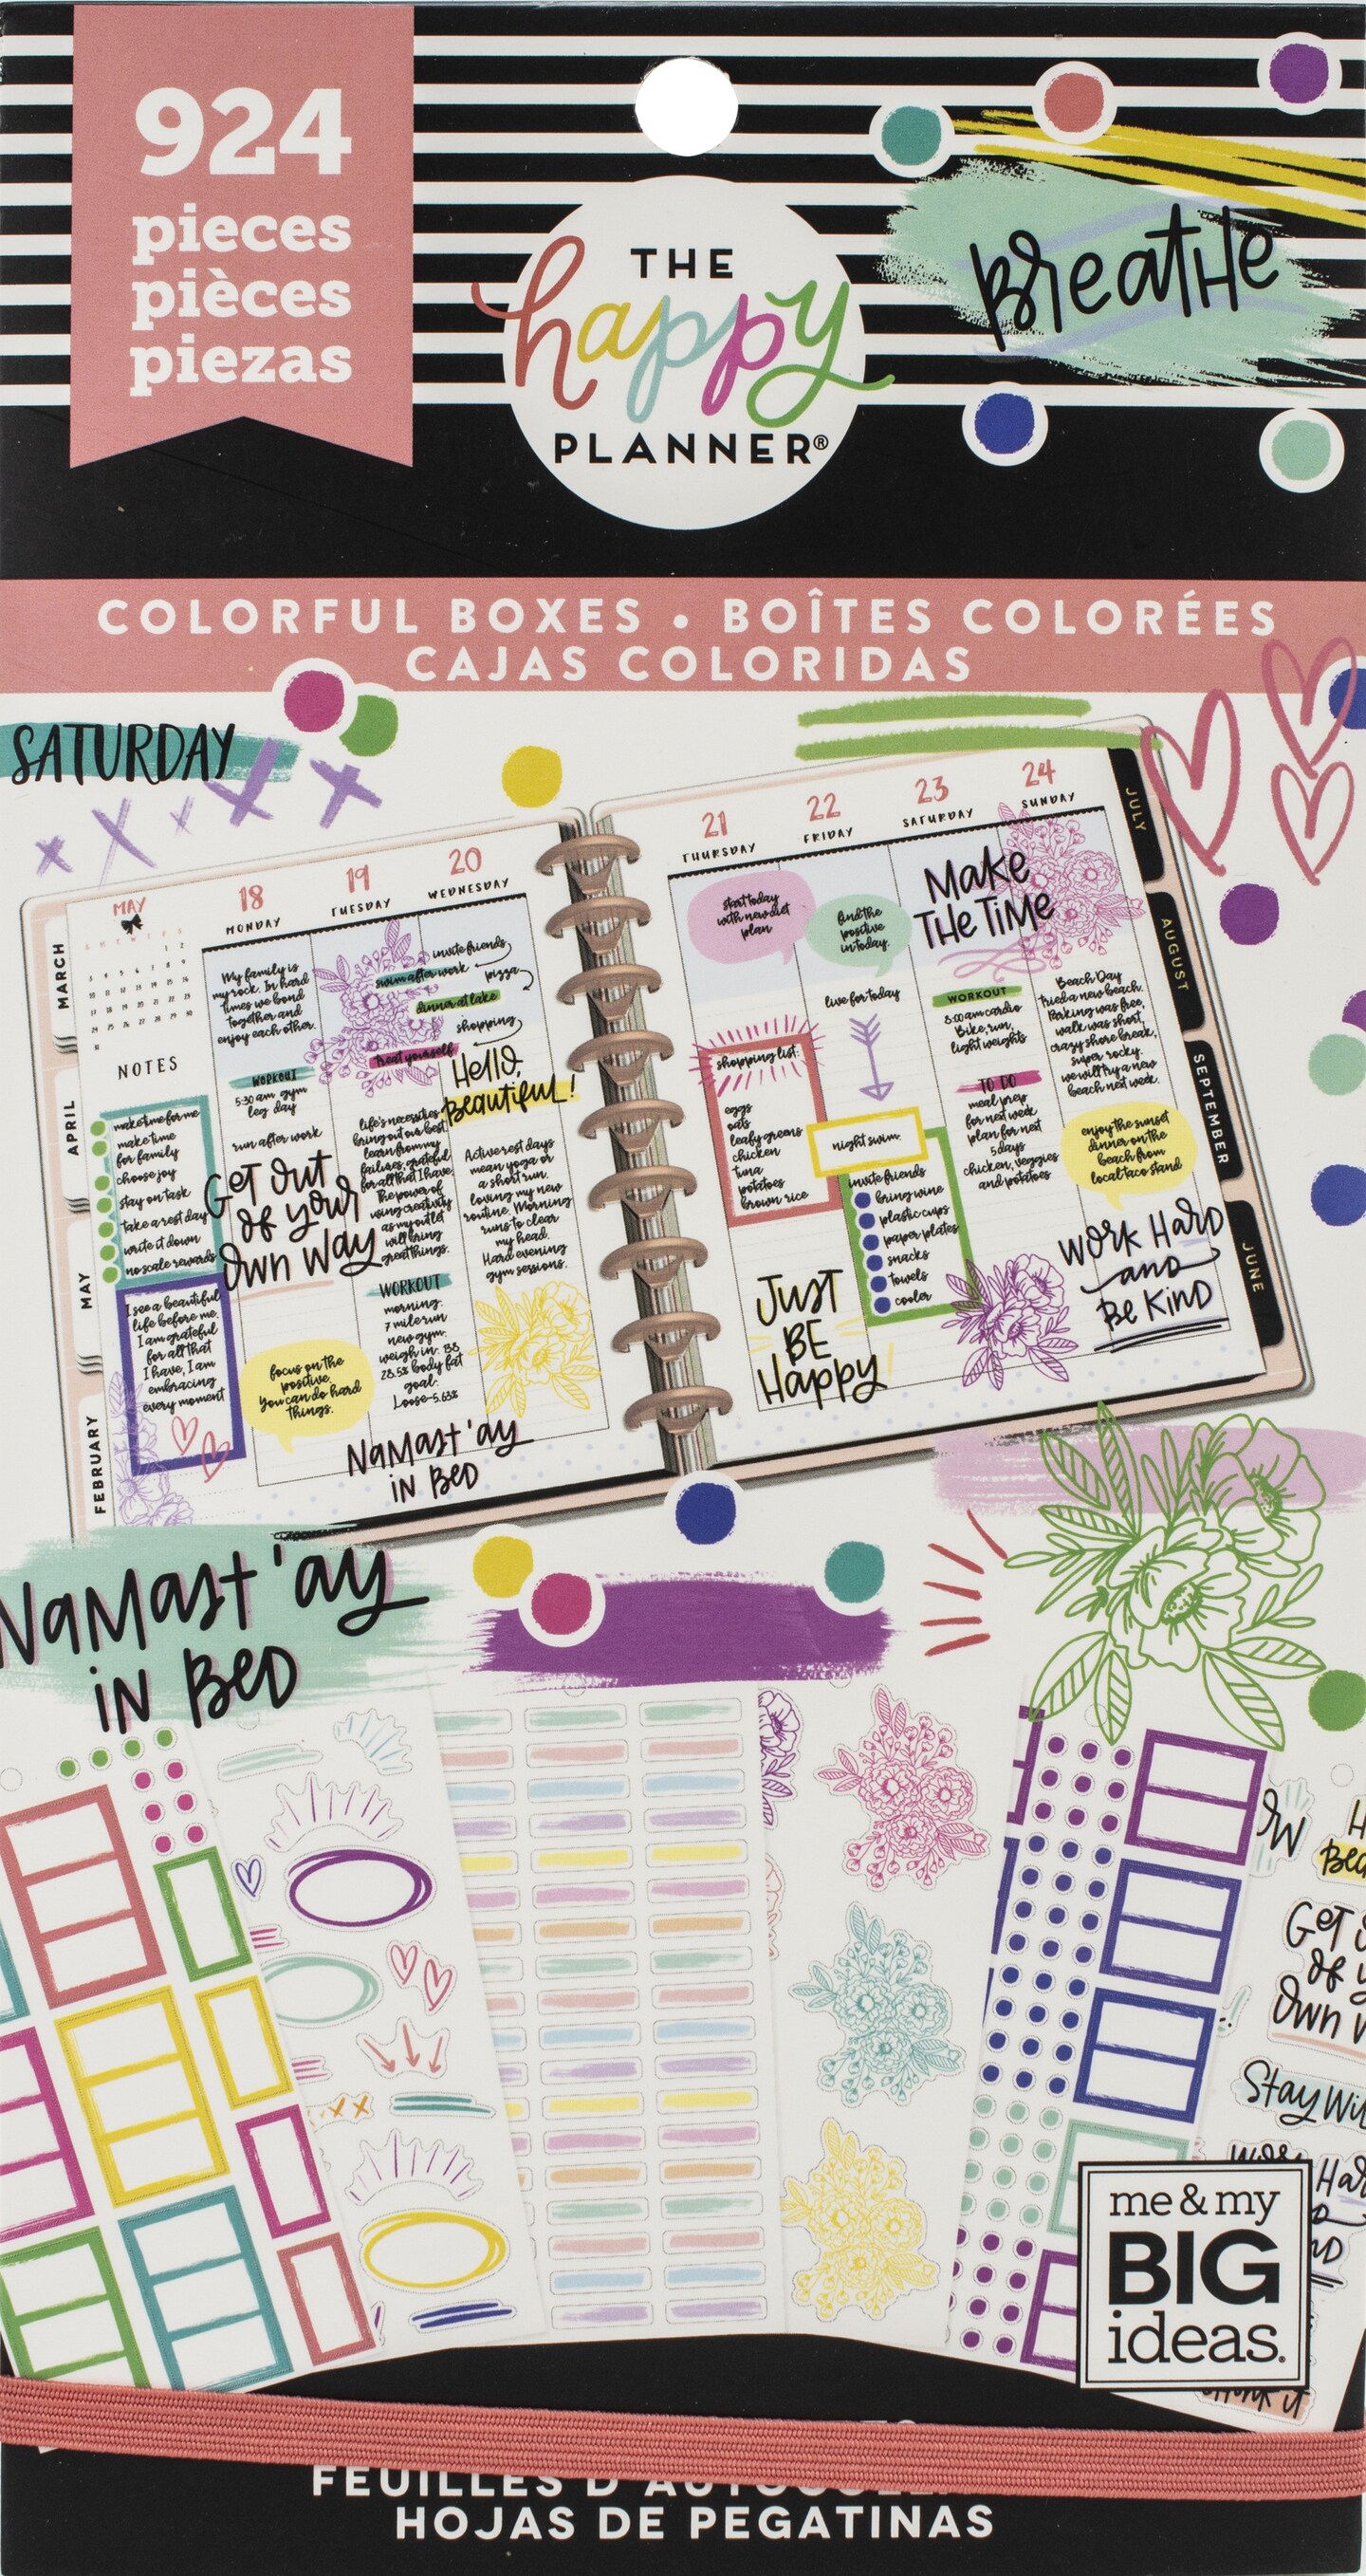 924
pieces
pièces
piezas
THE
happy
PLANNER®
BreatHe
COLORFUL BOXES • BOÎTES COLORÉES
CAJAS COLORIDAS
SATURDAY
MAY
18
MONDAY
19
TUESDAY
20
WEDNESDAY
21
THURSDAY
22
FRIDAY
23
SATURDAY
24
SUNDAY
MARCH
APRIL
MAY
FEBRUARY
JULY
AUGUST
SEPTEMBER
JUNE
NOTES
make time for me
make time
for family
choose joy
stay on task
take a rest day
write it down
no scale rewards
I see a beautiful
life before me.
I am grateful
for all that
I have, I am
embracing
every moment
My family is
my rock. In hard
times we bond
together and
enjoy each other.
WORKOUT
5:30 am gym
leg day
run after work
GeT OuT
of your
Own Way
focus on the
positive.
You can do hard
things.
treat yourself
life's necessities
bring out our best
learn from my
failures, grateful
for all that I have.
The power of
using creativity
as my outlet
will bring
great things.
WORKOUT
morning:
7 mile run
new gym:
weigh in: 138
28.5% body fat
goal:
Loose-5.63%
invite friends
swim after work
pizza
dinner at lake
shopping
Hello,
Beautiful!
Active rest days
mean yoga or
a short run.
loving my new
routine. Morning
runs to clear
my head.
Hard evening
gym sessions.
NaMast'ay
iN BeD
start today
with new diet
plan
shopping list:
eggs
oats
leafy greens
chicken
tuna
potatoes
brown rice
JusT
BE
Happy
find the
positive
in today.
live for today
night swim.
invite friends
bring wine
plastic cups
paper plates
snacks
towels
cooler
Make
THe TiMe
WORKOUT
8:00 am cardio
Bike, run,
light weights
TO DO
meal prep
for next week
plan for next
5 days
chicken, veggies
and potatoes
Beach Day
tried a new beach.
Parking was free,
walk was short,
crazy shore break,
super rocky.
we will try a new
beach next week.
enjoy the sunset
dinner on the
beach from
local taco stand
WOrk HarD
and
Be KiND
NaMast'ay
iN BeD
GeT
of y
Own
Stay Wi
me & my
BIG
ideas.
HOJAS DE PEGATINAS